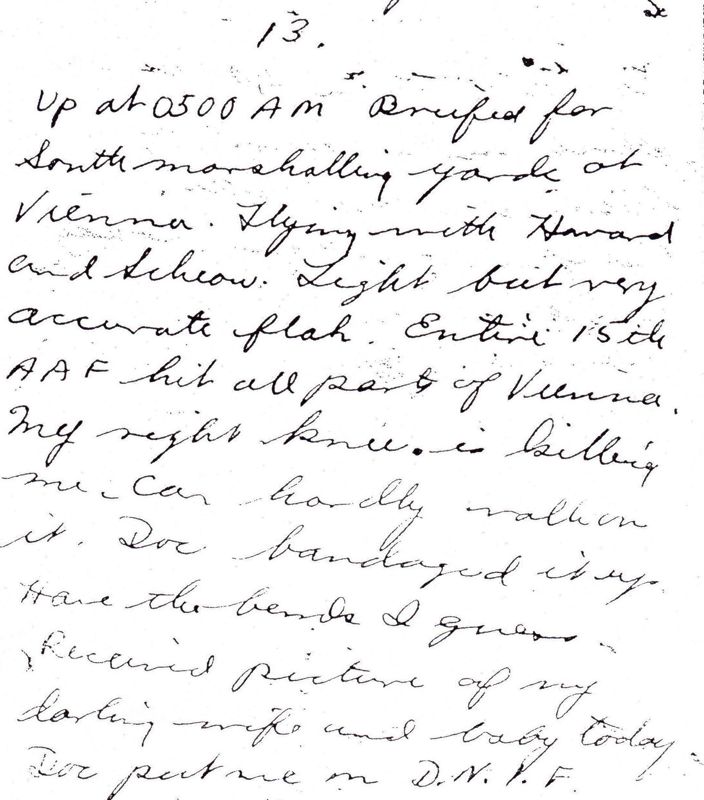 13.
Up at 0500 AM Briefed for
South marshalling yards at
Vienna. Flying with Howard
and Scheow. Light but very
accurate flak. Entire 15th
AAF hit all parts of Vienna.
My right knee. is killing
me. Can hardly walk on
it. Doc bandaged it up.
Have the bends I guess.
Received picture of my
darling wife and baby today.
Doc put me on D.N.I.F.